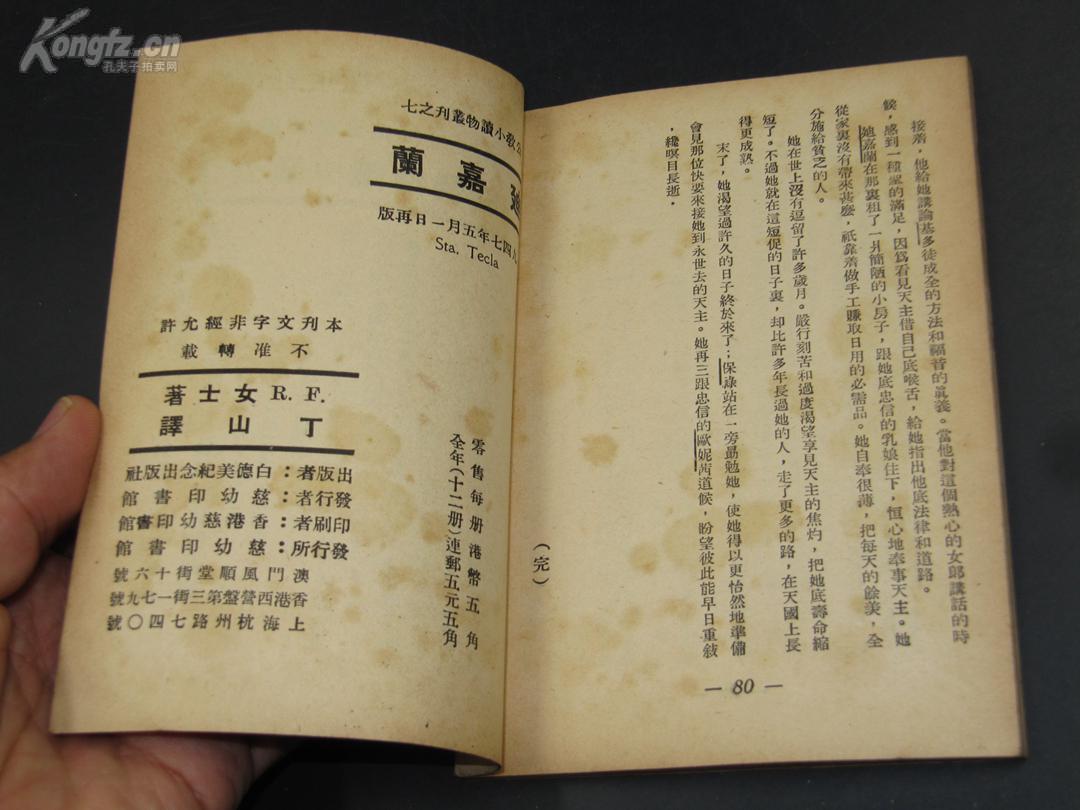 Kongfz.cn
孔夫子拍卖网
接着，他給她講論基多徒成全的方法和福音的眞義。當他對這個熱心的女郎講話的時
候，感到一種聖的滿足，因爲看見天主借自己底喉舌，給她指出他底法律和道路。
她嘉蘭在那裏租了一井簡陋的小房子，跟她底忠信的乳娘住下，恒心地奉事天主。她
從家裏沒有帶來甚麽，祇靠着做手工賺取日用的必需品。她自奉很薄，把每天的餘美，全
分施給貧乏的人。
她在世上沒有逗留了許多歲月。嚴行刻苦和過度渴望享見天主的焦灼，把她底壽命縮
短了。不過她就在這短促的日子裏，却比許多年長過她的人，走了更多的路，在天國上長
得更成熟。
末了，她渴望過許久的日子終於來了；保祿站在一旁勗勉她，使她得以更怡然地準備
會見那位快要來接她到永世去的天主。她再三跟忠信的歐妮茜道候，盼望彼此能早日重敍
，纔瞑目長逝．
（完）
— 80 —
敎小讀物叢刊之七
嘉蘭
四七年五月一日再版
Sta. Tecla
本刊文字非經允許
不准轉載
F. R. 女士著
丁山譯
出版者：白德美紀念出版社
發行者：慈幼印書館
印刷者：香港慈幼印書館
發行所：慈幼印書館
澳門風順堂街十六號
香港西營盤第三街一七九號
上海杭州路七四〇號
零售每册港幣五角
全年（十二册）連郵五元五角